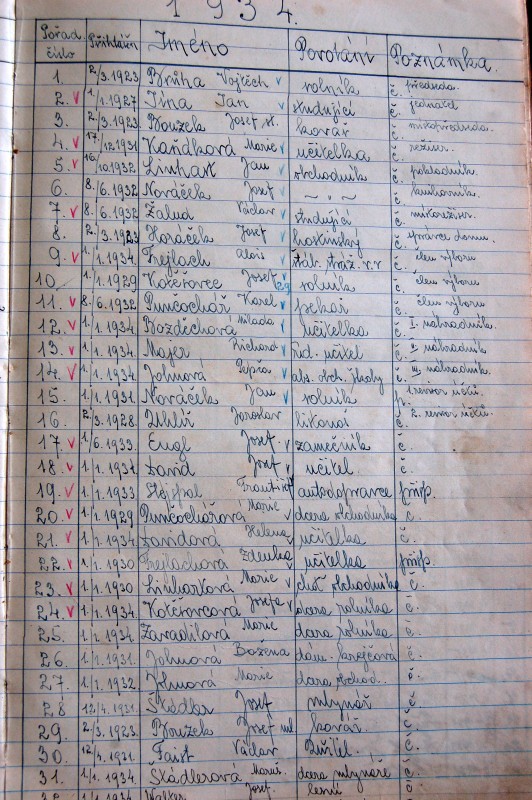 1934.
Pořad. číslo Přihlášen Jméno Povolání Poznámka.
1. 2/3.1923 Brůha Vojtěch rolník č. předseda.
2. 1/1.1927 Jína Jan studující č. jednatel
3. 2/3.1923 Bouzek Josef st. kovář č. místopředseda.
4. 17/12.1931 Kaňdková Marie učitelka č. režisér.
5. 16/10.1932 Linhart Jan obchodník č. pokladník.
6. 8./6.1932 Nováček Josef – „ – č. knihovník.
7. 8/6.1932 Žalud Václav studující č.
8. 2./3.1923 Horáček Josef hostinský č. správce domu.
9. 1/1.1934. Frejlach Alois č. člen výboru
10. 1/1.1929 Josef rolník č. člen výboru
11. 8./6.1932 Punčochář Karel pekař č. člen výboru
12. 1/1.1934 Bozděchová Milada učitelka č. I. náhradník.
13. 1/1.1934. Majer Richard učitel č. II náhradník
14. 1/1.1934 Johnová Pepča abs. obch. školy č. III. náhradník.
15. 1/1.1931 Nováček Jan rolník 1. revisor účtů.
16. 2/3.1928. Uhlíř Jaroslav č. 2. revisor účtů.
17. 1/6.1933. Engl Josef zámečník č.
18. 1./1.1931 David Josef učitel. č.
19. 1./1.1933 Stejspal autodopravce přisp.
20. 1./1.1929 Punčochářová Marie dcera obchodníka č.
21. 1./1.1934. Davidová Helena učitelka č.
22. 1./1.1930 Frejlachová Zdenka učitelka přisp.
23. 1./1.1930 Linhartová Marie choť obchodníka č.
24. 1./1.1934. Josefa dcera rolníka č.
25. 1./1.1934 Zavadilová Marie dcera rolníka č.
26. 1/1.1931. Johnová Božena č.
27. 1/1.1932. Johnová Marie dcera obchod. č.
28 12/4.1921. Škádler Josef mlynář č.
29. 2/3.1923. Bouzek Josef ml kovář. č.
30. 12/4.1921. Faist Václav č.
31. 1/1.1934. Škádlerová dcera mlynáře č.
Josef.